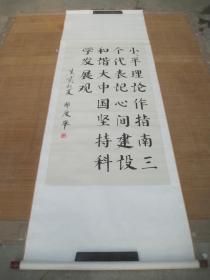 小平理论作指南三
个代表记心间建设
和谐大中国坚持科
学发展观